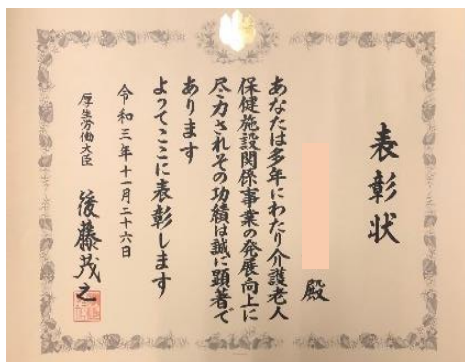 表彰状
殿
あなたは多年にわたり介護老人
保健施設関係事業の発展向上に
尽力されその功績は誠に顕著で
あります
よってここに表彰します
令和三年十一月二十六日
厚生労働大臣 後藤茂之